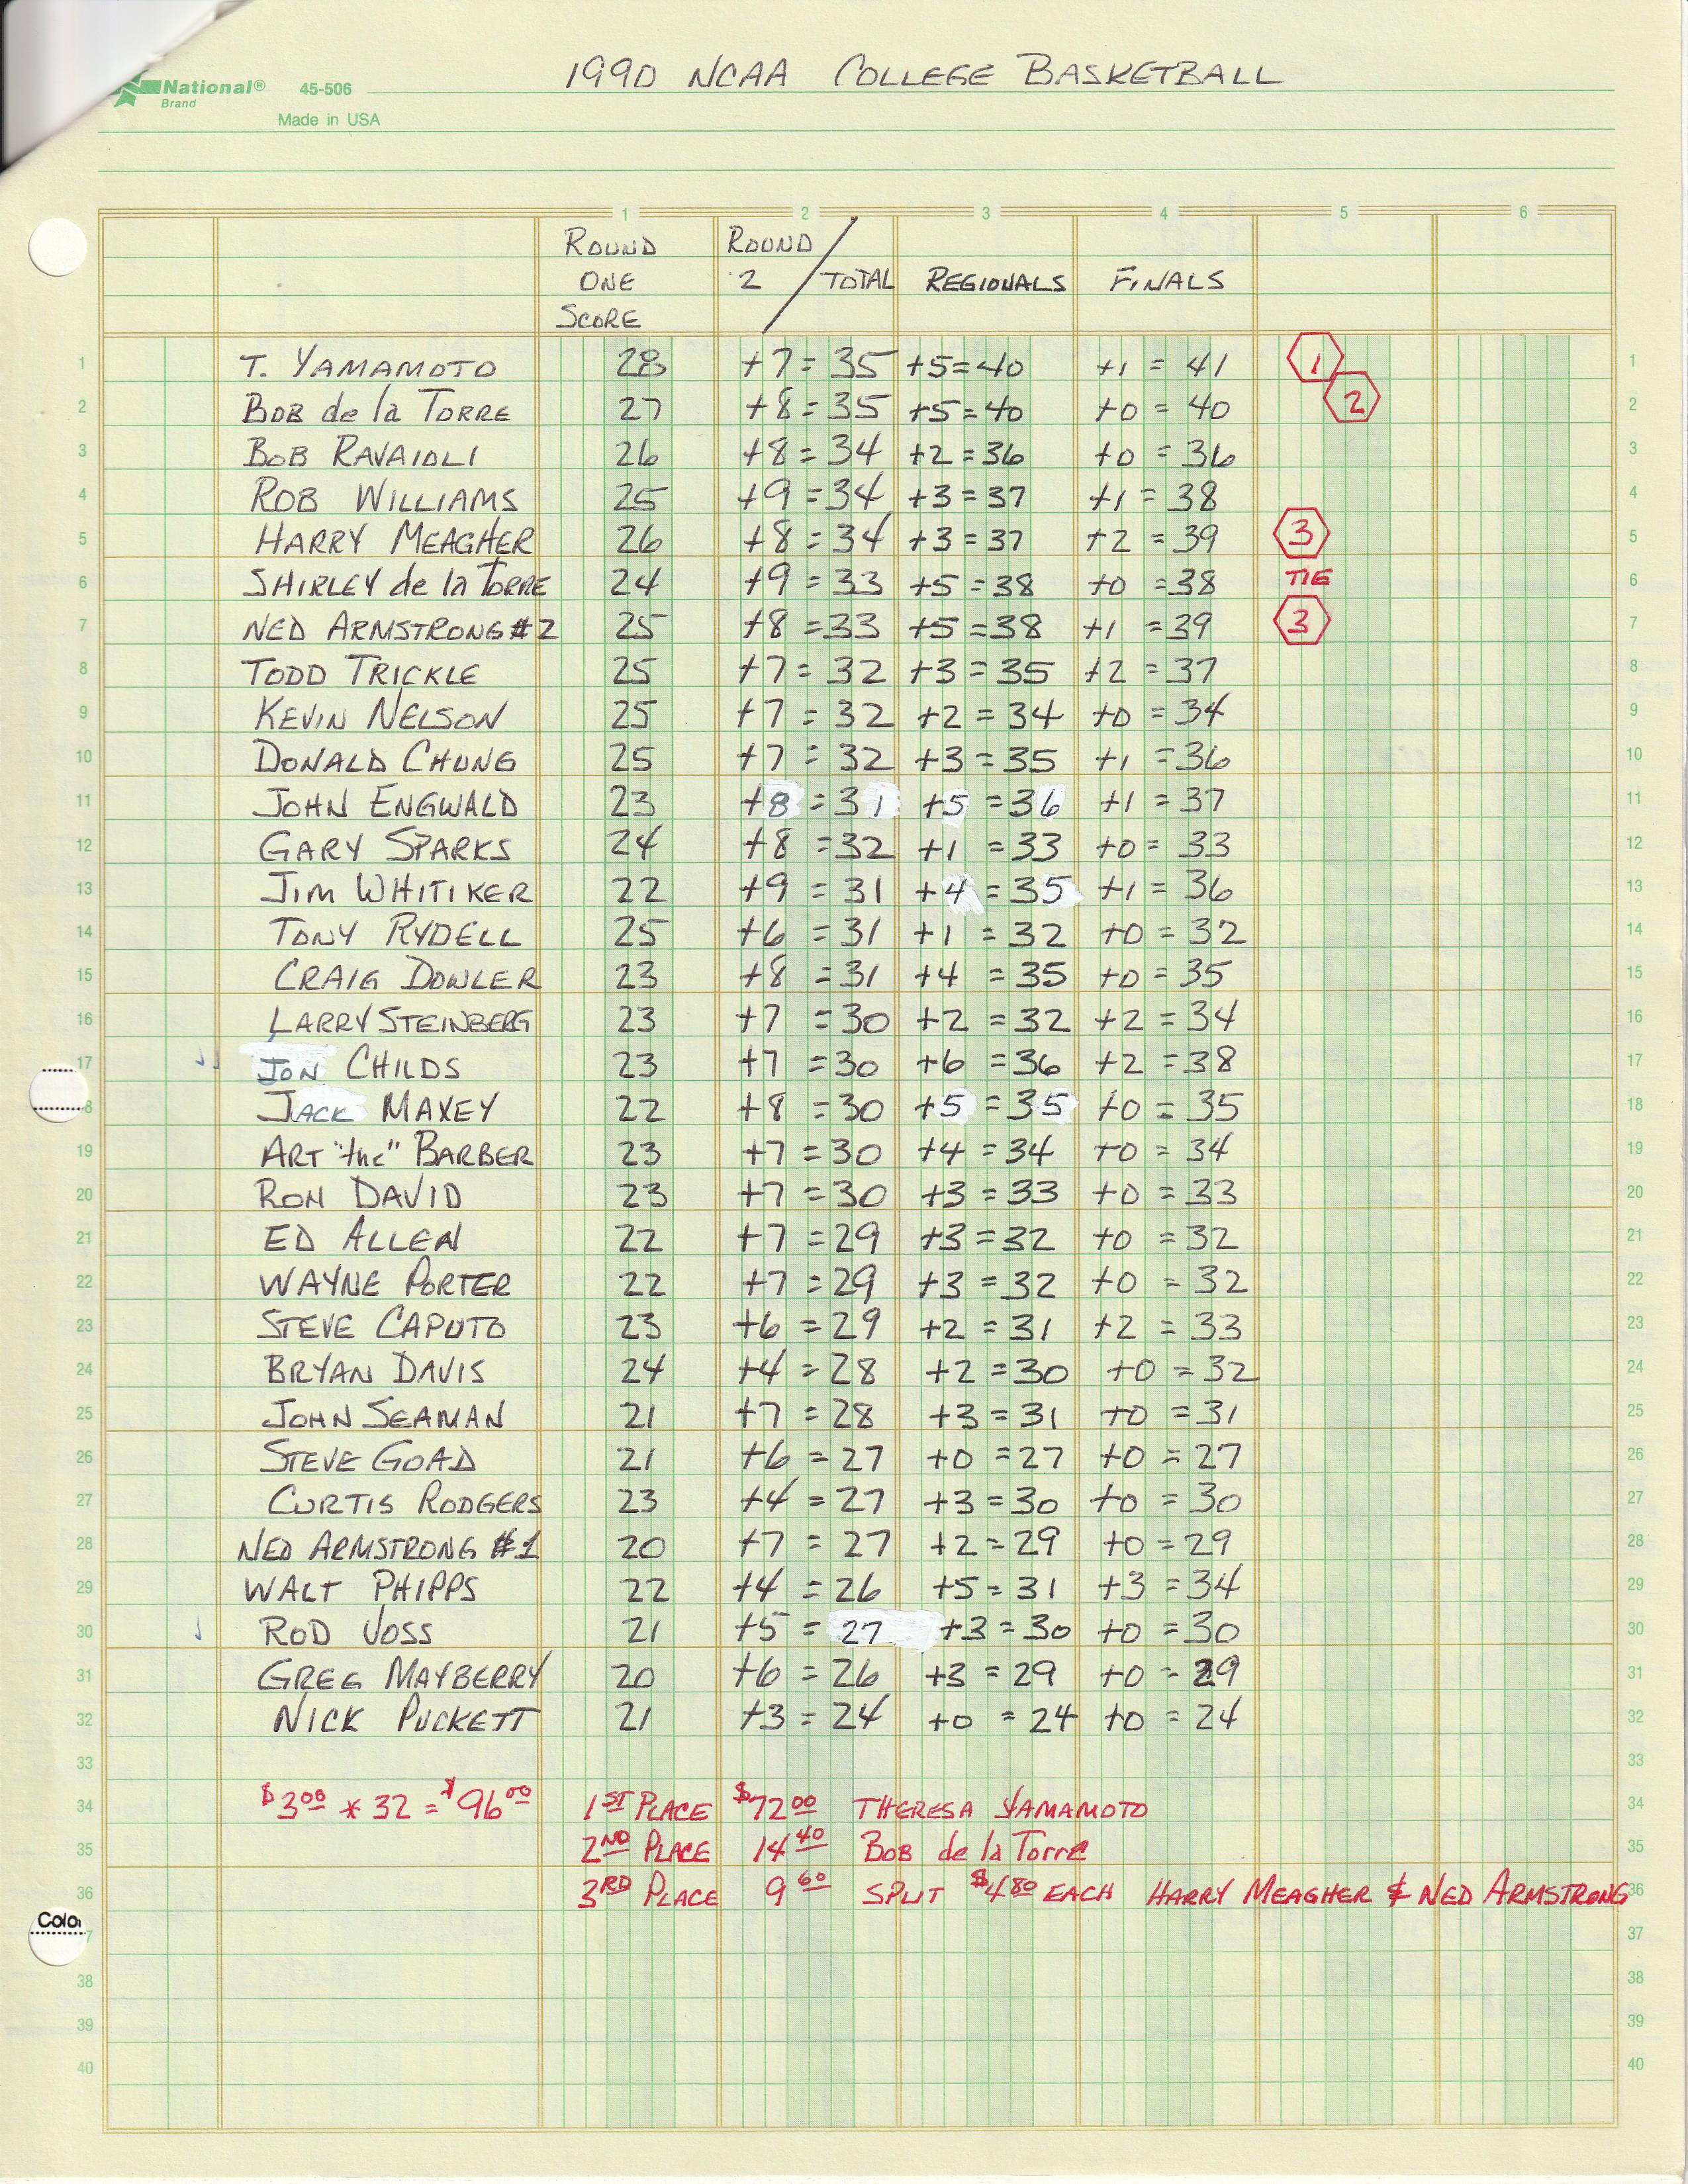 1990 NCAA COLLEGE BASKETBALL
National® 45-506
Brand
Made in USA
1 2 3 4 5 6
ROUND ONE SCORE ROUND 2 / TOTAL REGIONALS FINALS
1 T. YAMAMOTO 28 +7 = 35 +5 = 40 +1 = 41 1 1
2 BOB de la TORRE 27 +8 = 35 +5 = 40 +0 = 40 2 2
3 BOB RAVAIOLI 26 +8 = 34 +2 = 36 +0 = 36 3
4 ROB WILLIAMS 25 +9 = 34 +3 = 37 +1 = 38 4
5 HARRY MEAGHER 26 +8 = 34 +3 = 37 +2 = 39 3 5
6 SHIRLEY de la TORRE 24 +9 = 33 +5 = 38 +0 = 38 TIE 6
7 NED ARMSTRONG #2 25 +8 = 33 +5 = 38 +1 = 39 3 7
8 TODD TRICKLE 25 +7 = 32 +3 = 35 +2 = 37 8
9 KEVIN NELSON 25 +7 = 32 +2 = 34 +0 = 34 9
10 DONALD CHUNG 25 +7 = 32 +3 = 35 +1 = 36 10
11 JOHN ENGWALD 23 +8 = 31 +5 = 36 +1 = 37 11
12 GARY SPARKS 24 +8 = 32 +1 = 33 +0 = 33 12
13 JIM WHITIKER 22 +9 = 31 +4 = 35 +1 = 36 13
14 TONY RYDELL 25 +6 = 31 +1 = 32 +0 = 32 14
15 CRAIG DOWLER 23 +8 = 31 +4 = 35 +0 = 35 15
16 LARRY STEINBERG 23 +7 = 30 +2 = 32 +2 = 34 16
17 JON CHILDS 23 +7 = 30 +6 = 36 +2 = 38 17
8 JACK MAXEY 22 +8 = 30 +5 = 35 +0 = 35 18
19 ART "the" BARBER 23 +7 = 30 +4 = 34 +0 = 34 19
20 RON DAVID 23 +7 = 30 +3 = 33 +0 = 33 20
21 ED ALLEN 22 +7 = 29 +3 = 32 +0 = 32 21
22 WAYNE PORTER 22 +7 = 29 +3 = 32 +0 = 32 22
23 STEVE CAPUTO 23 +6 = 29 +2 = 31 +2 = 33 23
24 BRYAN DAVIS 24 +4 = 28 +2 = 30 +0 = 32 24
25 JOHN SEAMAN 21 +7 = 28 +3 = 31 +0 = 31 25
26 STEVE GOAD 21 +6 = 27 +0 = 27 +0 = 27 26
27 CURTIS RODGERS 23 +4 = 27 +3 = 30 +0 = 30 27
28 NED ARMSTRONG #1 20 +7 = 27 +2 = 29 +0 = 29 28
29 WALT PHIPPS 22 +4 = 26 +5 = 31 +3 = 34 29
30 ROD VOSS 21 +5 = 27 +3 = 30 +0 = 30 30
31 GREG MAYBERRY 20 +6 = 26 +3 = 29 +0 = 29 31
32 NICK PUCKETT 21 +3 = 24 +0 = 24 +0 = 24 32
33 33
34 $3.00 * 32 = $96.00 1ST PLACE $72.00 THERESA YAMAMOTO 34
35 2ND PLACE 14.40 BOB de la Torre 35
36 3RD PLACE 9.60 SPLIT $4.80 EACH HARRY MEAGHER & NED ARMSTRONG 36
Color
7 37
38 38
39 39
40 40